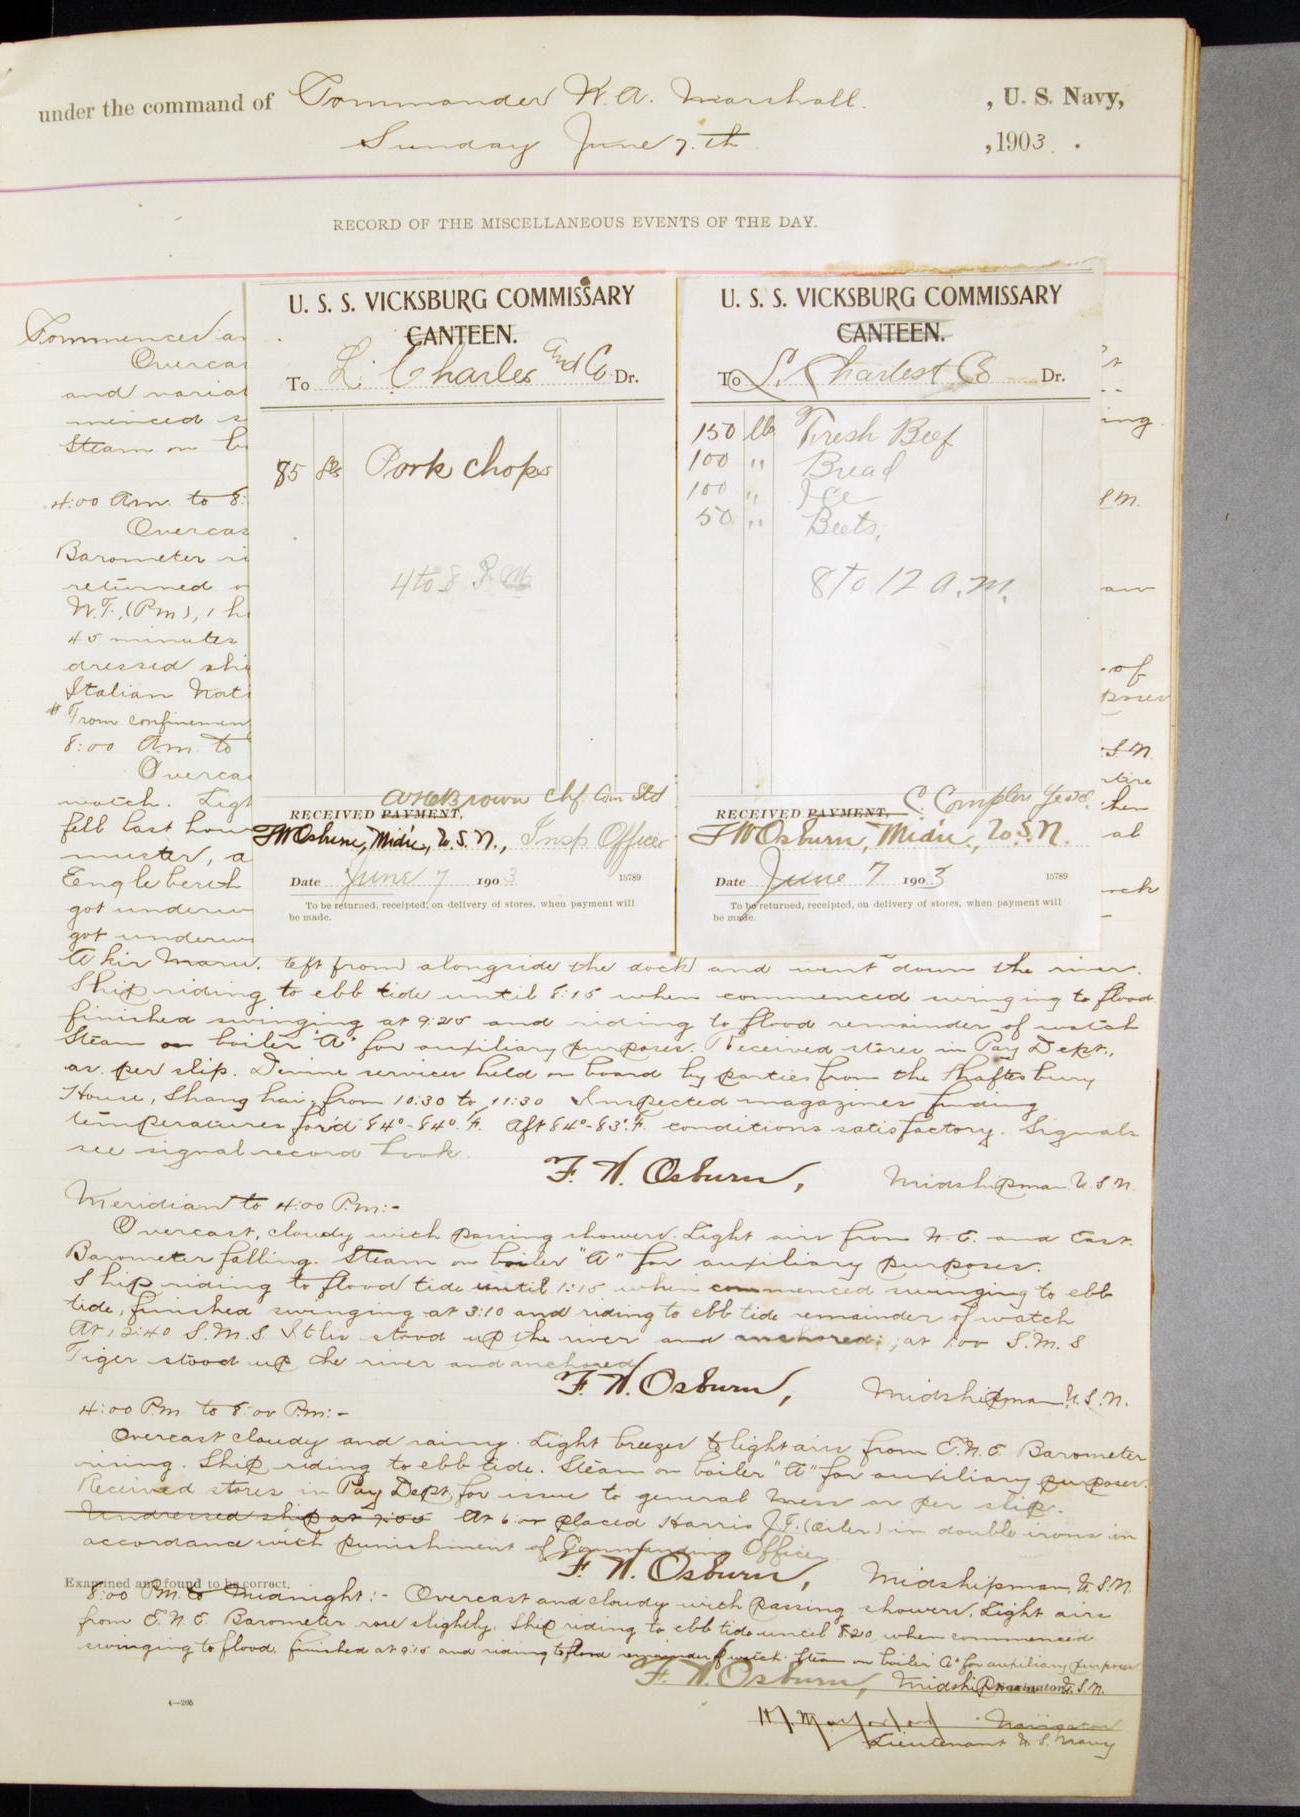 under the command of Commander W. A. Marshall. , U. S. Navy,
Sunday June 7.th , 1903 .
RECORD OF THE MISCELLANEOUS EVENTS OF THE DAY.
U. S. S. VICKSBURG COMMISSARY
CANTEEN.
To L. Charles and Co. Dr.
85 lbs Pork chops
4 to 8 P.M.
Brown Chf. Com Std
RECEIVED PAYMENT,
F W Osburn, Mid'n., U.S.N., Insp. Officer
Date June 7 1903 15789
To be returned, receipted, on delivery of stores, when payment will
be made.
U. S. S. VICKSBURG COMMISSARY
CANTEEN.
To L. Charles & Co Dr.
150 lbs Fresh Beef
100 " Bread
100 " Ice
50 " Beets.
8 to 12 a.m.
RECEIVED PAYMENT,
F W Osburn, Mid'n., U.S.N.
Date June 7 1903 15789
To be returned, receipted, on delivery of stores, when payment will
be made.
Commenced
Overcas
and variab
menced s
Steam on b
4:00 A.m. to 8:
Overcas
Barometer ri
returned
W.T. (P.m), 1 h
45 minutes
dressed shi
Italian Nat
From confinemen
8:00 A.m. to
Overcas
watch. Ligh
fell last hour
muster, a
Engleberth
got underw
got underw
Maru. left from alongside the dock and went down the river.
Ship riding to ebb tide until 8:15 when commenced swinging to flood
finished swinging at 9:25 and riding to flood remainder of watch
Steam on boiler "A" for auxiliary purposes. Received stores in Pay Dept.,
as per slip. Divine services held on board by parties from the Shaftesbury
House, Shanghai, from 10:30 to 11:30 Inspected magazines finding
temperatures for'd 84°-84°.F. Aft 84°-83°.F. conditions satisfactory. Signals
see signal record book.
F. W. Osburn, Midshipman U.S.N.
Meridian to 4:00 P.m:-
Overcast, cloudy with passing showers. Light airs from N.E. and East.
Barometer falling. Steam on boiler "A" for auxiliary purposes.
Ship riding to flood tide until 1:15 when commenced swinging to ebb
tide, finished swinging at 3:10 and riding to ebb tide remainder of watch
At 12:40 S.M.S. Iltis stood up the river and anchored; at 1:00 S.M.S
Tiger stood up the river and anchored
F. W. Osburn, Midshipman U.S.N.
4:00 P.m. to 8:00 P.m:-
Overcast cloudy and rainy. Light breezes to light airs from E.N.E Barometer
rising. Ship riding to ebb tide. Steam on boiler "A" for auxiliary purposes.
Received stores in Pay Dept. for issue to general mess as per slip.
Undressed ship at 7:00 At 6:00 placed Harris J.F. (Oiler) in double irons in
accordance with punishment of Commanding Officer
F. W. Osburn, Midshipman, U.S.N.
Examined and found to be correct.
8:00 P.M. to Midnight:- Overcast and cloudy with passing showers. Light airs
from E.N.E. Barometer rose slightly. Ship riding to ebb tide until 8:20 when commenced
swinging to flood, finished at 9:15 and riding to flood remainder of watch. Steam on boiler "A" for auxiliary purposes
F. W. Osburn, Midshipman U.S.N.
Navigator.
Navigator
Lieutenant U.S. Navy
4—205